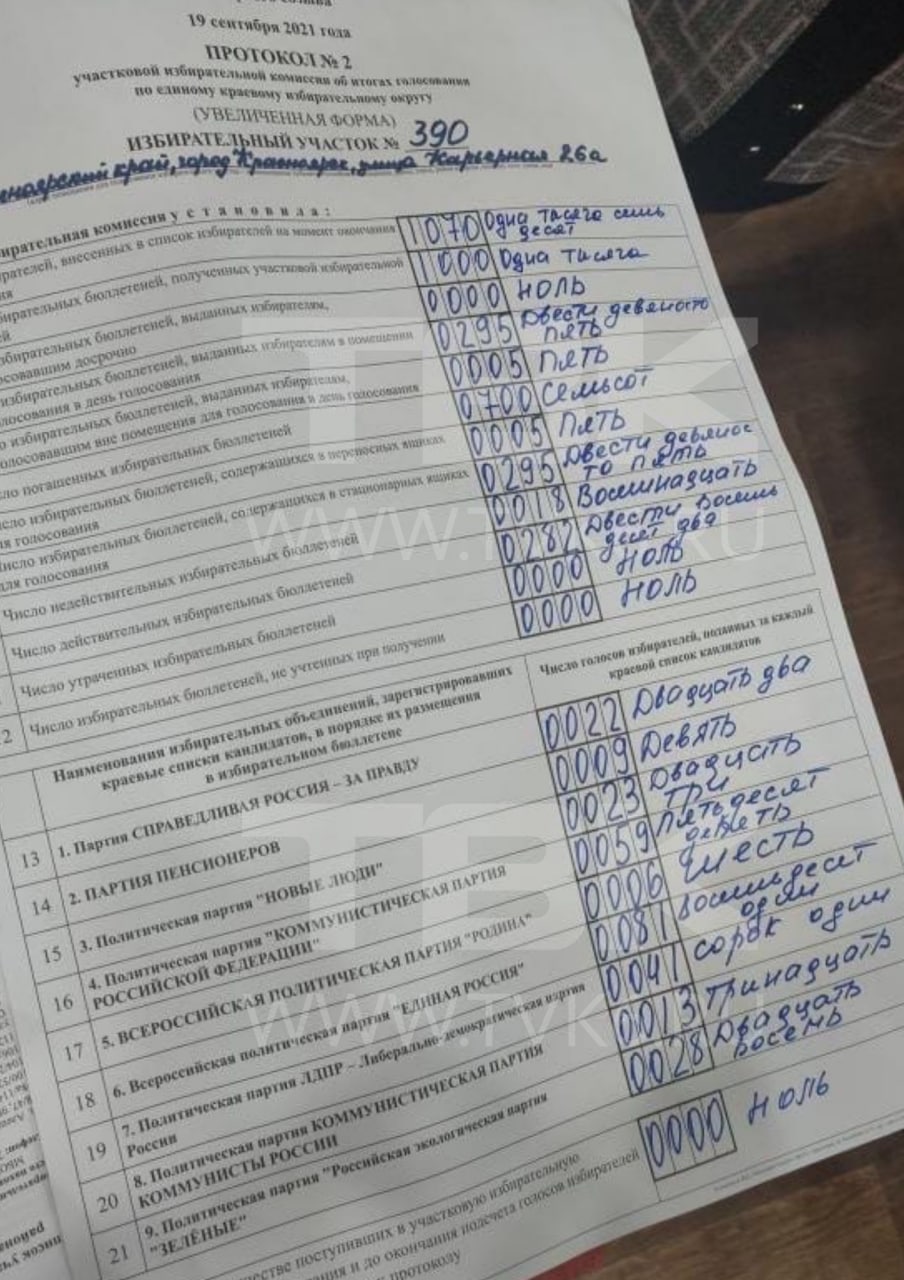 19 сентября 2021 года
ПРОТОКОЛ № 2
участковой избирательной комиссии об итогах голосования
по единому краевому избирательному округу
(УВЕЛИЧЕННАЯ ФОРМА)
ИЗБИРАТЕЛЬНЫЙ УЧАСТОК № 390
край, город Красноярск, улица Карьерная 26а
комиссия установила:
внесенных в список избирателей на момент окончания 1070 Одна тысяча семь
десят
бюллетеней, полученных участковой избирательной 1000 Одна тысяча
избирательных бюллетеней, выданных избирателям, 0000 ноль
досрочно
избирательных бюллетеней, выданных избирателям в помещении 0295 Двести девяносто
пять
голосования в день голосования
избирательных бюллетеней, выданных избирателям, 0005 Пять
вне помещения для голосования в день голосования
погашенных избирательных бюллетеней 0700 Семьсот
избирательных бюллетеней, содержащихся в переносных ящиках 0005 Пять
голосования
Число избирательных бюллетеней, содержащихся в стационарных ящиках 0295 Двести девянос
то пять
для голосования
Число недействительных избирательных бюллетеней 0018 Восемнадцать
Число действительных избирательных бюллетеней 0282 Двести восемь
десят два
Число утраченных избирательных бюллетеней 0000 ноль
Число избирательных бюллетеней, не учтенных при получении 0000 ноль
Наименования избирательных объединений, зарегистрировавших
краевые списки кандидатов, в порядке их размещения
в избирательном бюллетене
Число голосов избирателей, поданных за каждый
краевой список кандидатов
13 1. Партия СПРАВЕДЛИВАЯ РОССИЯ – ЗА ПРАВДУ 0022 Двадцать два
14 2. ПАРТИЯ ПЕНСИОНЕРОВ 0009 Девять
15 3. Политическая партия "НОВЫЕ ЛЮДИ" 0023 Двадцать
три
16 4. Политическая партия "КОММУНИСТИЧЕСКАЯ ПАРТИЯ
РОССИЙСКОЙ ФЕДЕРАЦИИ" 0059 Пятьдесят
девять
17 5. ВСЕРОССИЙСКАЯ ПОЛИТИЧЕСКАЯ ПАРТИЯ "РОДИНА" 0006 шесть
18 6. Всероссийская политическая партия "ЕДИНАЯ РОССИЯ" 0081 восемьдесят
один
19 7. Политическая партия ЛДПР – Либерально-демократическая партия
России 0041 сорок один
20 8. Политическая партия КОММУНИСТИЧЕСКАЯ ПАРТИЯ
КОММУНИСТЫ РОССИИ 0013 Тринадцать
21 9. Политическая партия "Российская экологическая партия
"ЗЕЛЁНЫЕ" 0028 Двадцать
восемь
поступивших в участковую избирательную 0000 ноль
и до окончания подсчета голосов избирателей
протоколу
ТВК
WWW.TVK6.RU
ТВК
WWW.TVK6.RU